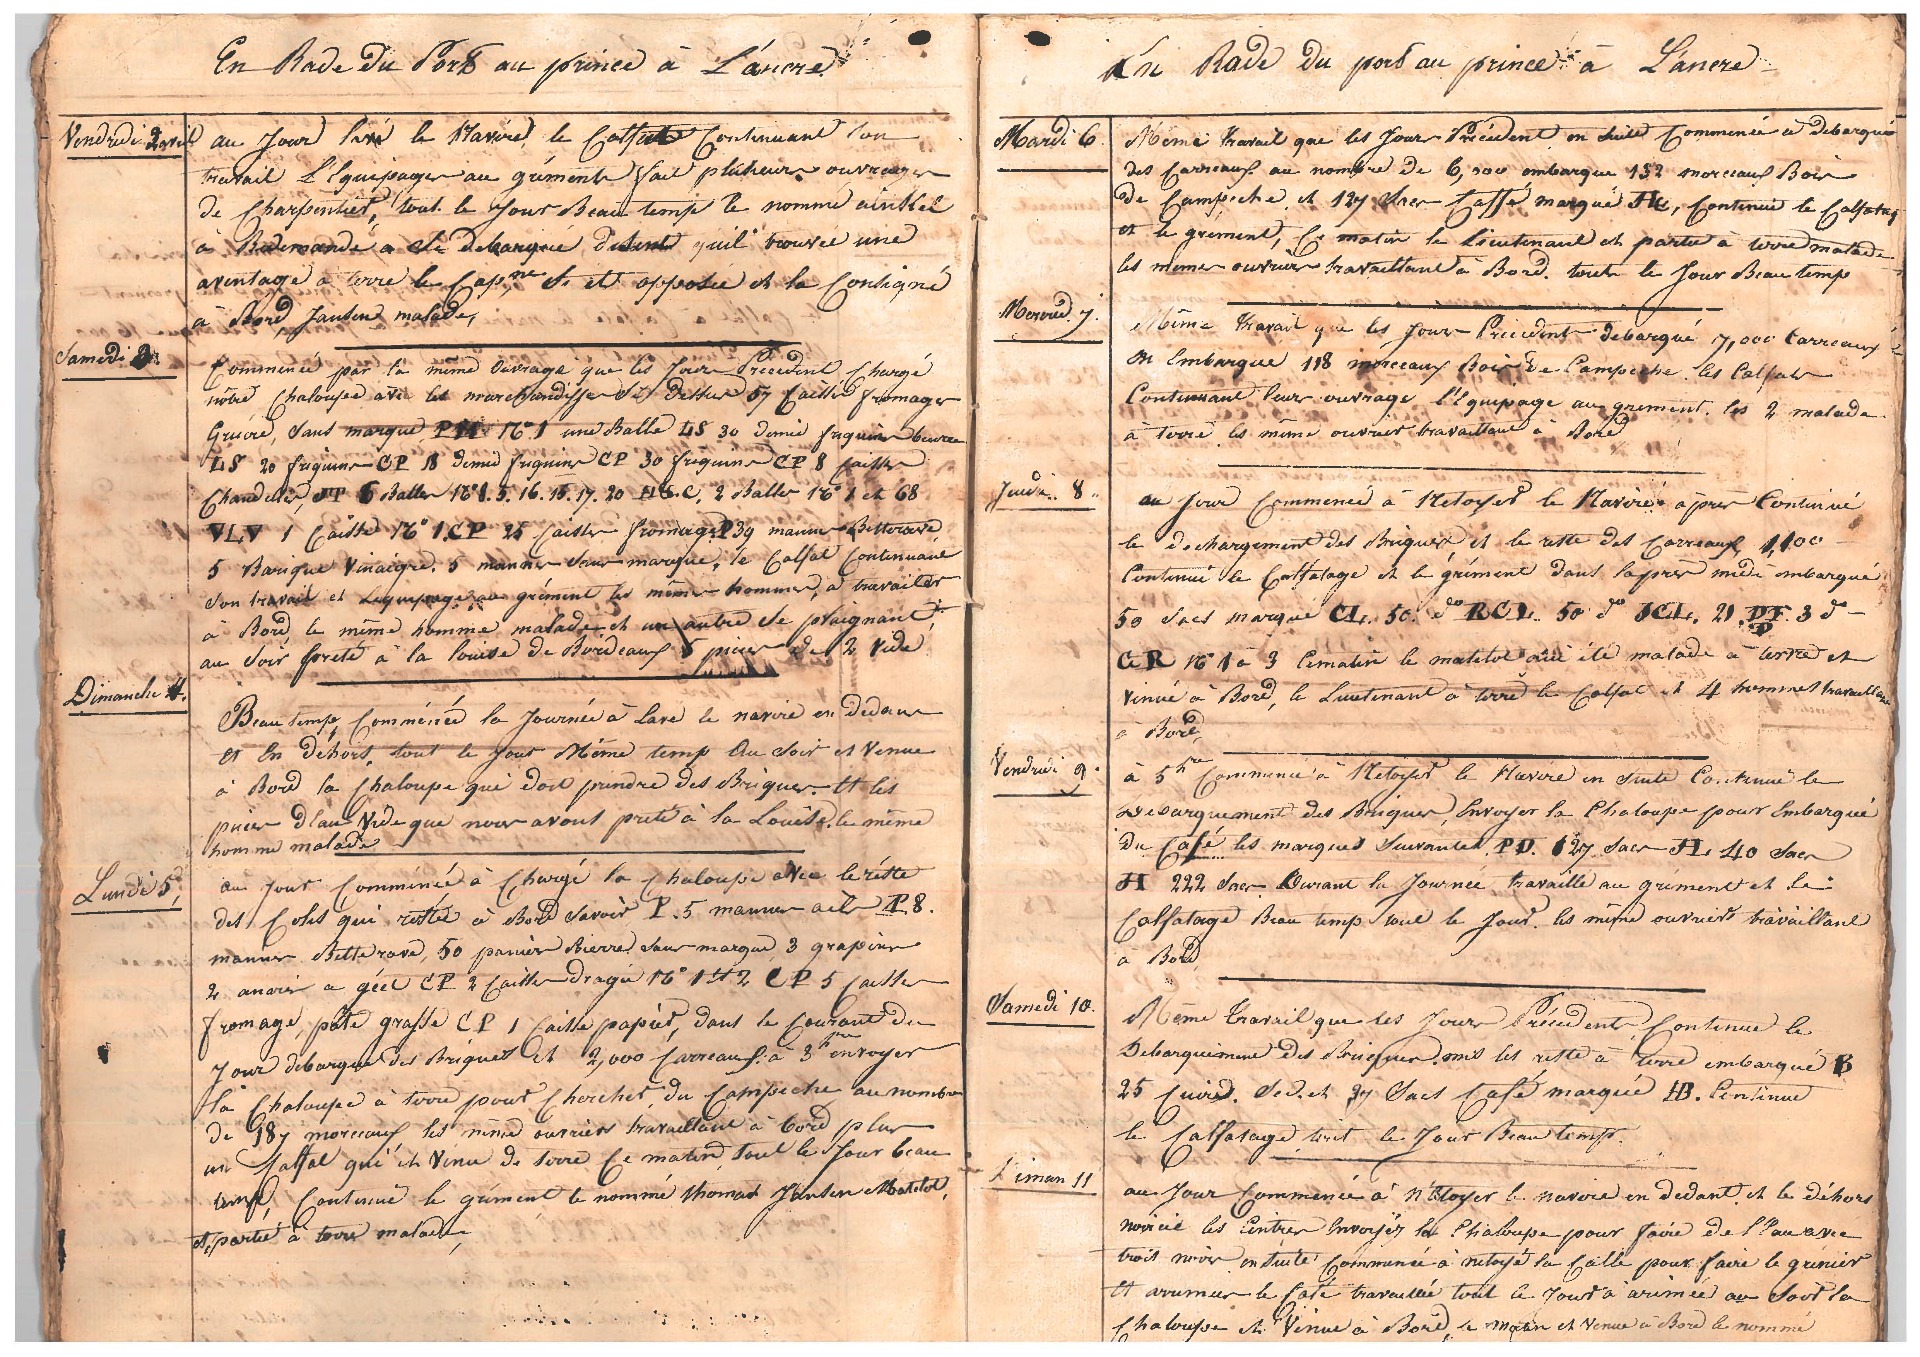 En Rade du Port au prince à L'ancre
Vendredi 2 avril
au Jour lavé le Navire, le Calfat Continuant son
travail L'Equipages au gréments fait plusieurs ouvrages
de Charpentier, tout le Jour Beau temp le nommé
à demandé a Debarqué disent quil trouvée une
aventage à terre le Capne Si est opposée et la Consigné
à Bord, Jansen malade,
Samedi 3.
Commencé par la même ouvrage que les Jour Précédent Chargé
nôtre Chaloupe avec les marchandisse Dessus 57 Caisses fromages
Gruire, sans marque, N° 1 une Balle LS 30 demie friquins beurre
LS 20 friquins CP 18 demie friquins CP 30 friquins CP 8 Caisses
Chandelles, JT 6 Balles N° 1. 5. 16. 15. 17. 20 HSC, 2 Balles N° 1 et 68
VLV 1 Caisse N° 1. CP 25 Caisses fromage P 39 mannes Betterave,
5 Barique Vinaigre, 5 mannes sans marque, le Calfat Continuant
son travail et Lequipage au grément les mêmes hommes, a travailer
à Bord, le même homme malade et un autre se plaignant,
au soir pretté à la louise de Bordeaux 5 pieces de 2 vide
Dimanche 4.
Beau temp, Commencée la Journée à Lavé le navire en dedans
et En dehors, tout le Jour Même temp Au Soir et Venue
à Bord la Chaloupe qui doit prendre des Briques. Et les
pieces d'Eau Vide que nous avons pretté à la Louise. le même
homme malade
Lundi 5,
au Jour Commencée à Chargé la Chaloupe avec le réste
des Colis qui resté à Bord Savoir P. 5 mannes P 8.
mannes Betterave, 50 panier Bierre Sans marque, 3 grapins
2 CP 2 Caisses dragée N° 1 et 2 CP 5 Caisses
fromage, pâte grasse CP 1 Caisse papier, dans le Courant du
Jour debarqué des Briques et 2,000 Carreaux. à 3 hres envoyer
la Chaloupe à terre pour Chercher, du Campeche au nombre
de 187 morceaux les même ouvriers travaillant à bord plus
un Calfat qui et Venu de terre Ce matin, tout le Jour beau
temp, Continué le grément le nommé thomas Jansen Matelot,
et partié à terre malade,
En Rade du port au prince à L'ancre
Mardi 6.
Même travail que les Jour Précédent en suite Commencée a debarqué
des Carreaux au nombre de 6,500 embarque 132 morceaux Bois
de Campeche, et 127 sacs Caffé marqué, Continué le Calfatag
et le grément, Ce matin le Lieutenant et partie à terre malade
les memes ouvriers travaillant à Bord. tout le Jour Beau temp
Mercred. 7.
Même travail que les Jours Précédent debarqué 7,000 Carreaux
et Embarque 118 morceaux Bois de Campeche. les Calfats
Continuant leurs ouvrage l'Equipage au grement. les 2 malade
à terre les même ouvrier travaillant à Bord
Jeudi. 8.
au Jour Commencé à Netoyer le Navire après Continué
le dechargement des Briques, et le reste des Carreaux 1,100
Continué le Calfatage et le grément dans laprès midi embarqué
50 Sacs marqué CL. 50. do RCL. 50 do JCL. 21. 3 do
CR N° 1 à 3 Cematin le matelot été malade à terre et
venue à Bord, le Lieutenant à terre le Calfat et 4 hommes travaillant
à Bord,
Vendredi 9.
à 5 hre Commencé à Netoyer le Navire en suite Continué le
Debarquement des Briques, Envoyer la Chaloupe pour Embarqué
Du Café les marques Suivantes. PD. 127 Sacs H. 40 Sacs
H 222 Sacs Durant la Journée travaillé au grément et le
Calfatage Beau temp tout le Jour. les même ouvriers travaillant
à Bord,
Samedi 10.
Même travail que les Jours Précédents Continue le
Debarquement des Briques, mis les reste à terre embarqué B
25 Cuire. Sec. et 37 Sacs Café marquée HB. Continue
le Calfatage tout le Jour Beau temp.
Diman 11
au Jour Commencée à nétoyer le navire en dedant et le déhors
noircie les Ceintres Envoyer la Chaloupe pour faire de l'Eau avec
trois noirs ensuite Commencé à netoyé la Calle pour faire le grénier
et arrumer le Café travaillée tout le Jour à arimée au Soir la
Chaloupe et Venue à Bord, le matin et Venue à Bord le nommé